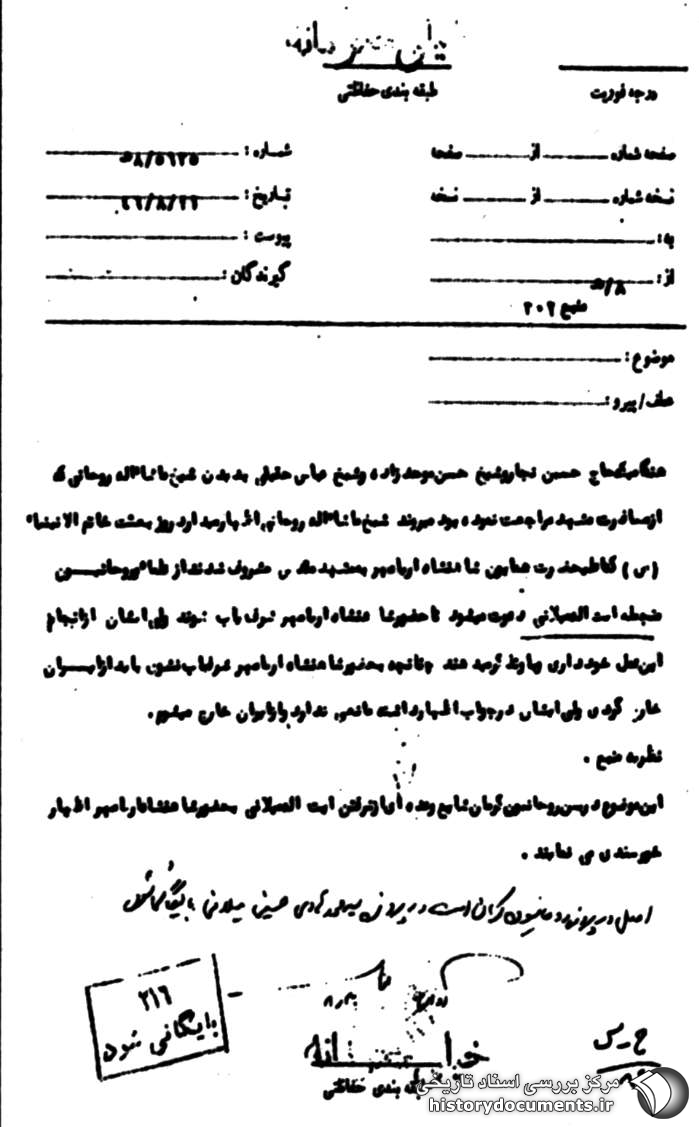 خیلی محرمانه
طبقه بندی حفاظتی
درجه فوریت
صفحه شماره از صفحه
نسخه شماره از نسخه
به:
از: ۸/ﻫ
منبع ۲۰۲
شماره: ۸/۵۶۲۵ﻫ
تاریخ:
پیوست:
گیرندگان:
موضوع:
عطف/پیرو:
هنگامیکه حاج حسن نجار و شیخ حسن موحدزاده و شیخ عباس حقیقی بدیدن شیخ ماشااله روحانی که
از مسافرت مشهد مراجعت نموده بود میروند شیخ ماشااله روحانی اظهار میدارد روز بعثت خاتم الانبیاء
(ص) که اعلیحضرت همایون شاهنشاه آریامهر به مشهد مقدس مشرف شدند از تمام روحانیون
منجمله آیت اله میلانی دعوت میشود تا حضور شاهنشاه آریامهر شرف یاب شوند ولی ایشان از انجام
این عمل خودداری و باو تذکر میدهند چنانچه بحضور شاهنشاه آریامهر شرفیاب نشوی باید از ایران
خارج گردی ولی ایشان در جواب اظهار داشت مانعی ندارد و از ایران خارج میشوم.
نظریه منبع .
این موضوع در بین روحانیون کرمان شایع و عده ای از نرفتن آیت اله میلانی بحضور شاهنشاه آریامهر اظهار
خورسندی می نمایند .
اصل در پرونده روحانیون کرمان است در پرونده سید محمد هادی حسینی میلانی بایگانی شود
۲۱۶
بایگانی شود
خیلی محرمانه
طبقه بندی حفاظتی
مرکز بررسی اسناد تاریخی
historydocuments.ir